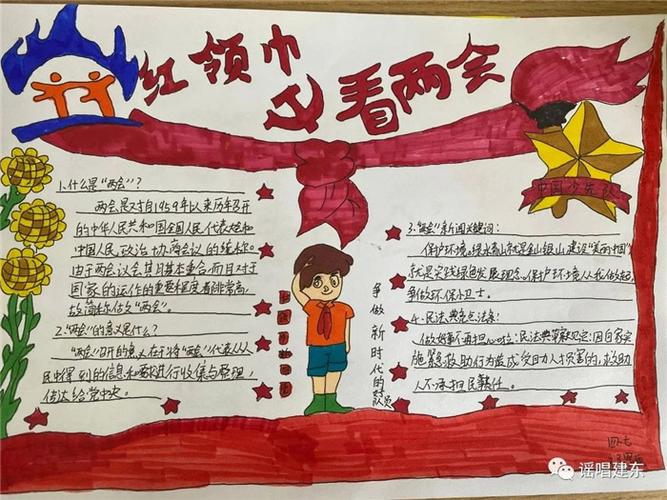 红领巾
看两会
中国少先队
1.什么是“两会”？
两会是对自1959年以来历年召开
的中华人民共和国全国人民代表大会和
中国人民政治协商会议的统称。
由于两会议会其月基本重合,而且对于
国家的运作的重要程度看非常高,
故简称做“两会”。
2.“两会”的意义是什么？
“两会”召开的意义在于:将“两会”代表从人
民中得到的信息和要求进行收集与整理,
传达给党中央。
争做新时代的好队员
3.“两会”新闻关键词：
保护环境。绿水青山就是金山银山 建设“美丽中国”
就是实践绿色发展理念。保护环境,从我做起,
争做环保小卫士。
4.民法典亮点法条：
做好事不再担心吃亏:民法典草案规定:因自愿实
施紧急救助行为造成受助人损害的,救助
人不承担民事责任。
四.七
谣唱建东